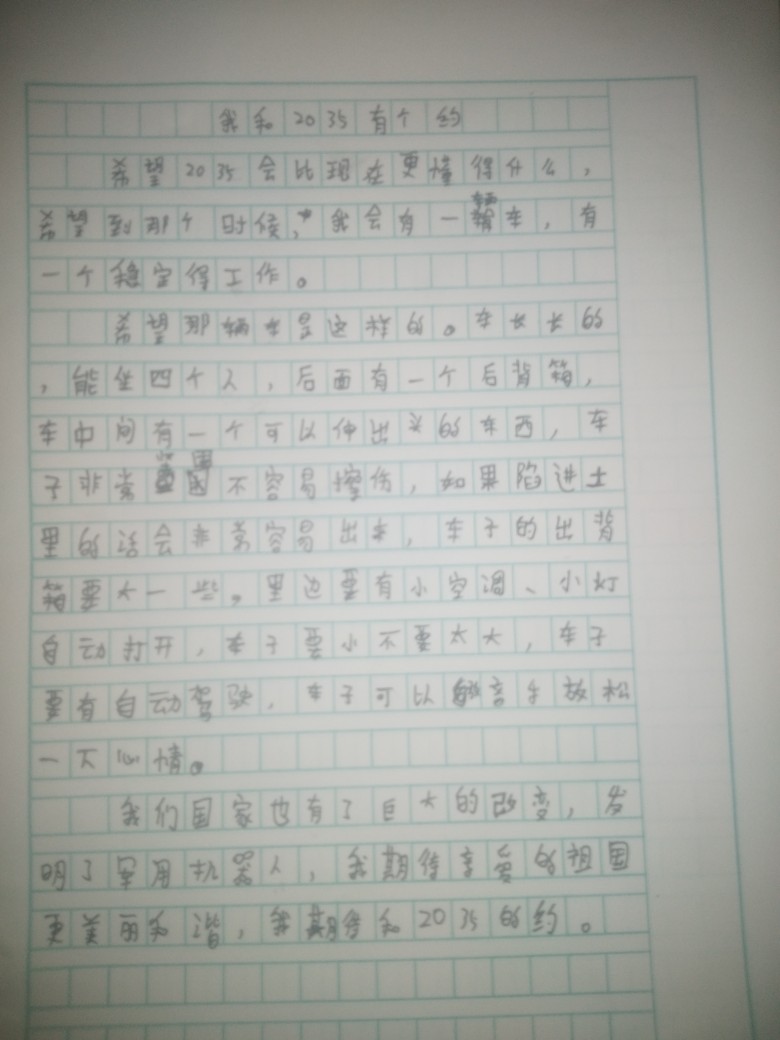 我和2035有个约
希望2035会比现在更懂得什么，
希望到那个时候，我会有一辆车，有
一个稳定得工作。
希望那辆车是这样的。车长长的
，能坐四个人，后面有一个后背箱，
车中间有一个可以伸出来的东西，车
子非常坚固不容易擦伤，如果陷进土
里的话会非常容易出来，车子的出背
箱要大一些。里边要有小空调、小灯
自动打开，车子要小不要太大，车子
要有自动驾驶，车子可以放音乐放松
一下心情。
我们国家也有了巨大的改变，发
明了军用机器人，我期待亲爱的祖国
更美丽和谐，我期待和2035的约。